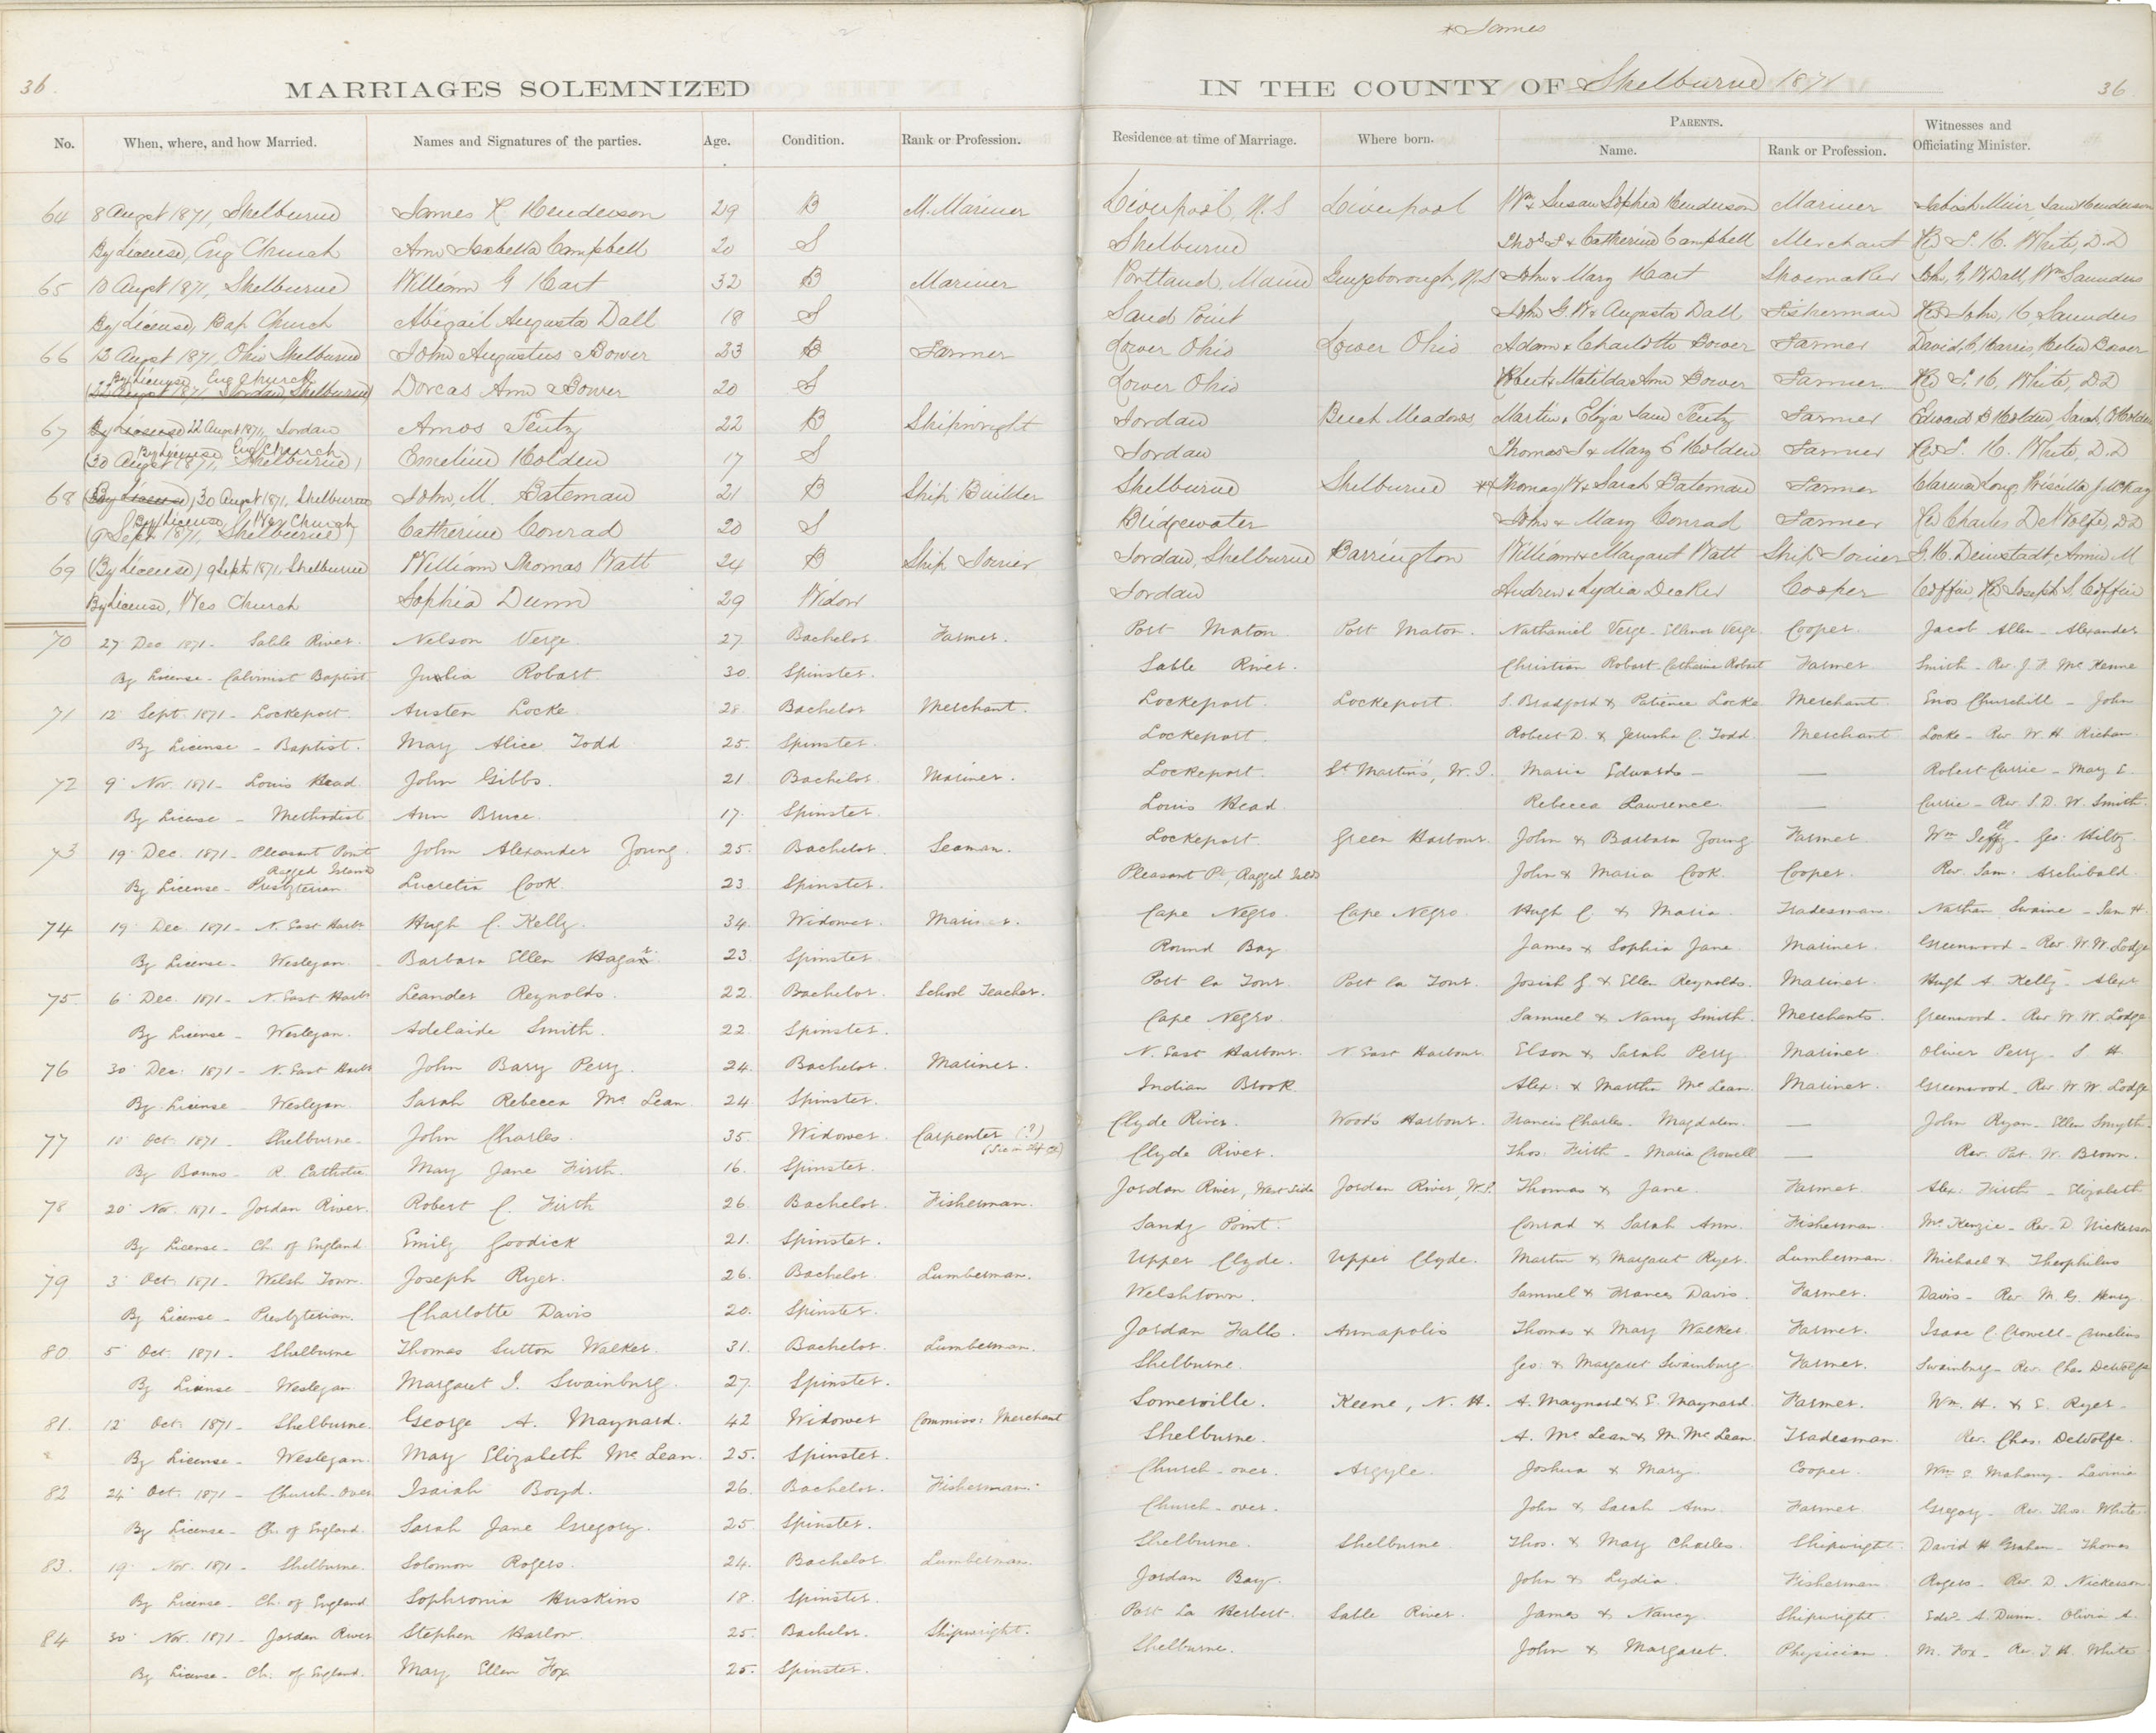 * James
36. MARRIAGES SOLEMNIZED IN THE COUNTY OF Shelburne 1871 36
No. When, where, and how Married. Names and Signatures of the parties. Age. Condition. Rank or Profession. Residence at time of Marriage. Where born. PARENTS. Name. Rank or Profession. Witnesses and Officiating Minister.
64 8 Augst 1871, Shelburne James R. Henderson 29 B M. Mariner Liverpool, N.S Liverpool Wm & Susan Sophia Henderson Mariner Muir, Saml Henderson
By License, Eng Church Ann Isabella Campbell 20 S Shelburne Thos S & Catherine Campbell Merchant Rev T. H. White, D.D
65 10 Augst 1871, Shelburne William G Hart 32 B Mariner Portland, Maine Guysborough, N.S John & Mary Hart Shoemaker John, G, W, Dall, Wm Saunders
By License, Bap Church Abigail Augusta Dall 18 S Sand Point John G. W & Augusta Dall Fisherman Rev John, H, Saunders
66 12 Augst 1871, Ohio Shelburne John Augustus Bower 23 B Farmer Lower Ohio Lower Ohio Adam & Charlotte Bower Farmer David, C, Harris, Helen Bower
By License Eng Church
(22 Augst 1871 Jordan, Shelburne) Dorcas Ann Bower 20 S Lower Ohio Robert & Matilda Ann Bower Farmer Rev T. H. White, D.D
67 By License 22 Augst 1871, Jordan Amos Teutz 22 B Shipwright Jordan Beech Meadows Martin & Eliza Jane Teutz Farmer Edward B Holden, Sarah, O Holden
By License Eng Church
(30 Augst 1871, Shelburne) Emeline Holden 17 S Jordan Thomas J & Mary E Holden Farmer Rev T. H. White, D.D
68 (By License), 30 Augst 1871, Shelburne John, M. Bateman 21 B Ship Builder Shelburne Shelburne ** Thomas, W & Sarah Bateman Farmer Clarence Long, Priscilla J. McKay
By License, Wes Church
(9 Sept 1871, Shelburne) Catherine Conrad 20 S Bridgewater John & Mary Conrad Farmer Rev Charles DeWolfe, DD
69 (By License) 9 Sept 1871, Shelburne William Thomas Watt 24 B Ship Joiner Jordan, Shelburne Barrington William & Margaret Watt Ship Joiner G. H. Deinstadt, Annie M
By License, Wes Church Sophia Dunn 29 Widow Jordan Andrew & Lydia Decker Cooper Coffin, Rev Joseph S. Coffin
70 27 Dec 1871 - Sable River. Nelson Verge. 27 Bachelor Farmer. Port Maton Port Maton. Nathaniel Verge - Ellenor Verge. Cooper. Jacob Allen - Alexander
By License - Calvinist Baptist Julia Robart 30. Spinster. Sable River. Christian Robart - Catharine Robart Farmer Smith - Rev. J. F. McKenne
71 12 Sept. 1871 - Lockeport. Austen Locke 28 Bachelor Merchant. Lockeport. Lockeport. S. Bradford & Patience Locke Merchant. Enos Churchill - John
By License - Baptist. Mary Alice Todd 25. Spinster. Lockeport. Robert D. & Jerusha C. Todd. Merchant Locke - Rev. W. H. Richan
72 9 Nov. 1871 - Louis Head. John Gibbs. 21 Bachelor Mariner. Lockeport. St Martin's, W. I. Maria Edwards - — Robert Currie - Mary E.
By License - Methodist Ann Bruce. 17. Spinster. Louis Head. Rebecca Lawrence. — Currie - Rev. S. D. W. Smith.
73 19 Dec. 1871 - Pleasant Point John Alexander Young. 25. Bachelor. Seaman. Lockeport. Green Harbour. John & Barbara Young Farmer Wm - Geo. Hiltz
Ragged Island
By License - Presbyterian Lucretia Cook. 23 Spinster. Pleasant Pt, Ragged Islds John & Maria Cook. Cooper. Rev. Sam. Archibald.
74 19 Dec. 1871 - N. East Harbr Hugh C. Kelly. 34. Widower. Mariner. Cape Negro. Cape Negro. Hugh C. & Maria. Tradesman. Nathan Swaine - Sam H.
By License - Wesleyan. Barbara Ellen Hagar. 23 Spinster. Round Bay James & Sophia Jane Mariner. Greenwood - Rev. W. W. Lodge
75. 6 Dec. 1871 - N. East Harbr Leander Reynolds. 22. Bachelor. School Teacher. Port la Tour. Port la Tour. Josiah G & Ellen Reynolds. Mariner. Hugh A. Kelly - Alexr
By License - Wesleyan. Adelaide Smith. 22 Spinster. Cape Negro. Samuel & Nancy Smith. Merchants. Greenwood - Rev W. W. Lodge
76 30 Dec. 1871 - N. East Harbr John Barry Perry. 24. Bachelor. Mariner. N. East Harbour. N. East Harbour. Elson & Sarah Perry. Mariner. Oliver Perry - S. H.
By License - Wesleyan Sarah Rebecca McLean. 24. Spinster. Indian Brook. Alex. & Martha McLean. Mariner. Greenwood - Rev W. W. Lodge
77 10 Oct. 1871 - Shelburne. John Charles. 35. Widower. Carpenter (?) Clyde River. Wood's Harbour. Francis Charles - Magdalen. — John Ryan - Ellen Smyth.
By Banns - R. Catholic May Jane Firth. 16. Spinster. Clyde River. Thos. Firth - Maria Crowell — Rev. Pat. W. Brown.
78 20 Nov. 1871 - Jordan River. Robert C. Firth 26 Bachelor. Fisherman. Jordan River, West Side Jordan River, W.S. Thomas & Jane. Farmer. Alex. Firth - Elizabeth
By License - Ch. of England. Emily Goodick 21. Spinster. Sandy Point. Conrad & Sarah Ann. Fisherman. McKenzie - Rev. D. Nickerson
79 3 Oct. 1871 - Welsh Town. Joseph Ryer. 26. Bachelor. Lumberman. Upper Clyde. Upper Clyde. Martin & Margaret Ryer. Lumberman. Michael & Theophilus
By License - Presbyterian. Charlotte Davis 20. Spinster. Welshtown. Samuel & Frances Davis. Farmer. Davis - Rev. M. G. Henry.
80. 5 Oct. 1871 - Shelburne Thomas Sutton Walker. 31. Bachelor. Lumberman. Jordan Falls. Annapolis Thomas & Mary Walker. Farmer. Isaac C. Crowell - Cornelius
By License - Wesleyan Margaret I. Swainburg. 27. Spinster. Shelburne. Geo. & Margaret Swainburg. Farmer. Swainburg - Rev. Chas DeWolfe
81. 12 Oct. 1871 - Shelburne. George A. Maynard. 42 Widower Commiss: Merchant Somerville. Keene, N. H. A. Maynard & E. Maynard. Farmer. Wm. H. & E. Ryer -
By License - Wesleyan. Mary Elizabeth McLean. 25. Spinster. Shelburne. A. McLean & M. McLean. Tradesman. Rev. Chas. DeWolfe.
82 24 Oct. 1871 - Church-over Isaiah Boyd. 26. Bachelor. Fisherman. Church-over. Argyle. Joshua & Mary. Cooper. Wm E. Mahany - Lavinia
By License - Ch. of England. Sarah Jane Gregory. 25 Spinster. Church-over. John & Sarah Ann. Farmer Gregory - Rev. Thos. White.
83. 19 Nov. 1871 - Shelburne. Solomon Rogers. 24. Bachelor. Lumberman. Shelburne. Shelburne Thos. & Mary Charles. Shipwright. David H. Graham - Thomas
By License - Ch. of England Sophronia Huskins 18. Spinster. Jordan Bay. John & Lydia. Fisherman Rogers - Rev. D. Nickerson
84 30 Nov. 1871 - Jordan River Stephen Harlow. 25. Bachelor. Shipwright. Port La Herbert. Sable River. James & Nancy. Shipwright. Edw. A. Dunn - Olivia A.
By License - Ch. of England. Mary Ellen Fox 25. Spinster. Shelburne. John & Margaret. Physician. M. Fox - Rev. T. H. White